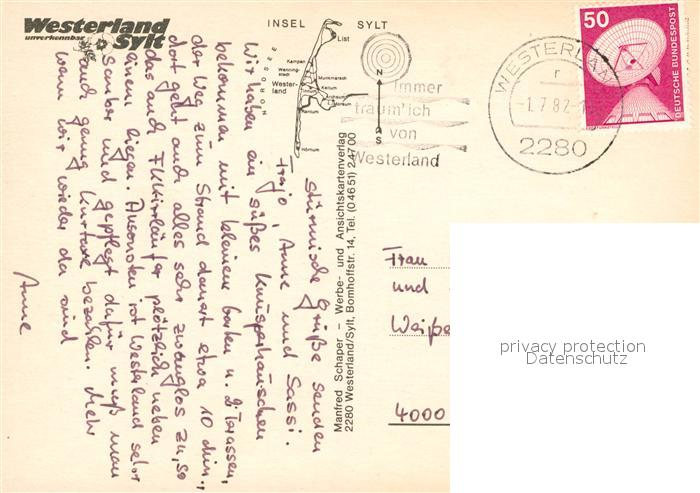 Westerland
unverkennbar
Sylt
INSEL SYLT
List
Kampen
Wenning-
stedt
Munkmarsch
Wester-
land
Tinnum
Keitum
Archsum
Morsum
Rantum
Hörnum
NORDSEE
N
S
Immer
träum' ich
von
Westerland
WESTERLAND
1.7.82
2280
50
DEUTSCHE BUNDESPOST
Manfred Schaper – Werbe- und Ansichtskartenverlag
2280 Westerland/Sylt, Bomhoffstr. 14, Tel. (04651) 24700
Stürmische Grüße senden
Anne und Sassi.
Wir haben ein süßes Knusperhäuschen
bekommen mit kleinem Garten u. 2 Terassen,
der Weg zum Strand dauert etwa 10 Min.,
dort geht auch alles sehr zwanglos zu, so
das auch plötzlich neben
einem liegen. Ansonsten ist Westerland sehr
sauber und gepflegt dafür muß man
auch genug Kurtaxe bezahlen. Mehr
wenn wir wieder da sind
Anne
Frau
und
Weiße
4000
privacy protection
Datenschutz